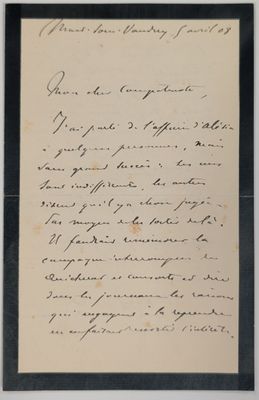 Mont-sous-Vaudrey 5 avril 08
Mon cher Compatriote,
J'ai parlé de l'affaire d'Alésia
à quelques personnes, mais
sans grand succès : les uns
sont indifférents, les autres
disent qu'il y a chose jugée.
pas moyen de les sortir de là.
Il faudrait recommencer la
campagne interrompue de
Quicherat et consorts et dire
dans les journaux les raisons
qui engagent à la reprendre
en en faisant ressortir l'intérêt.